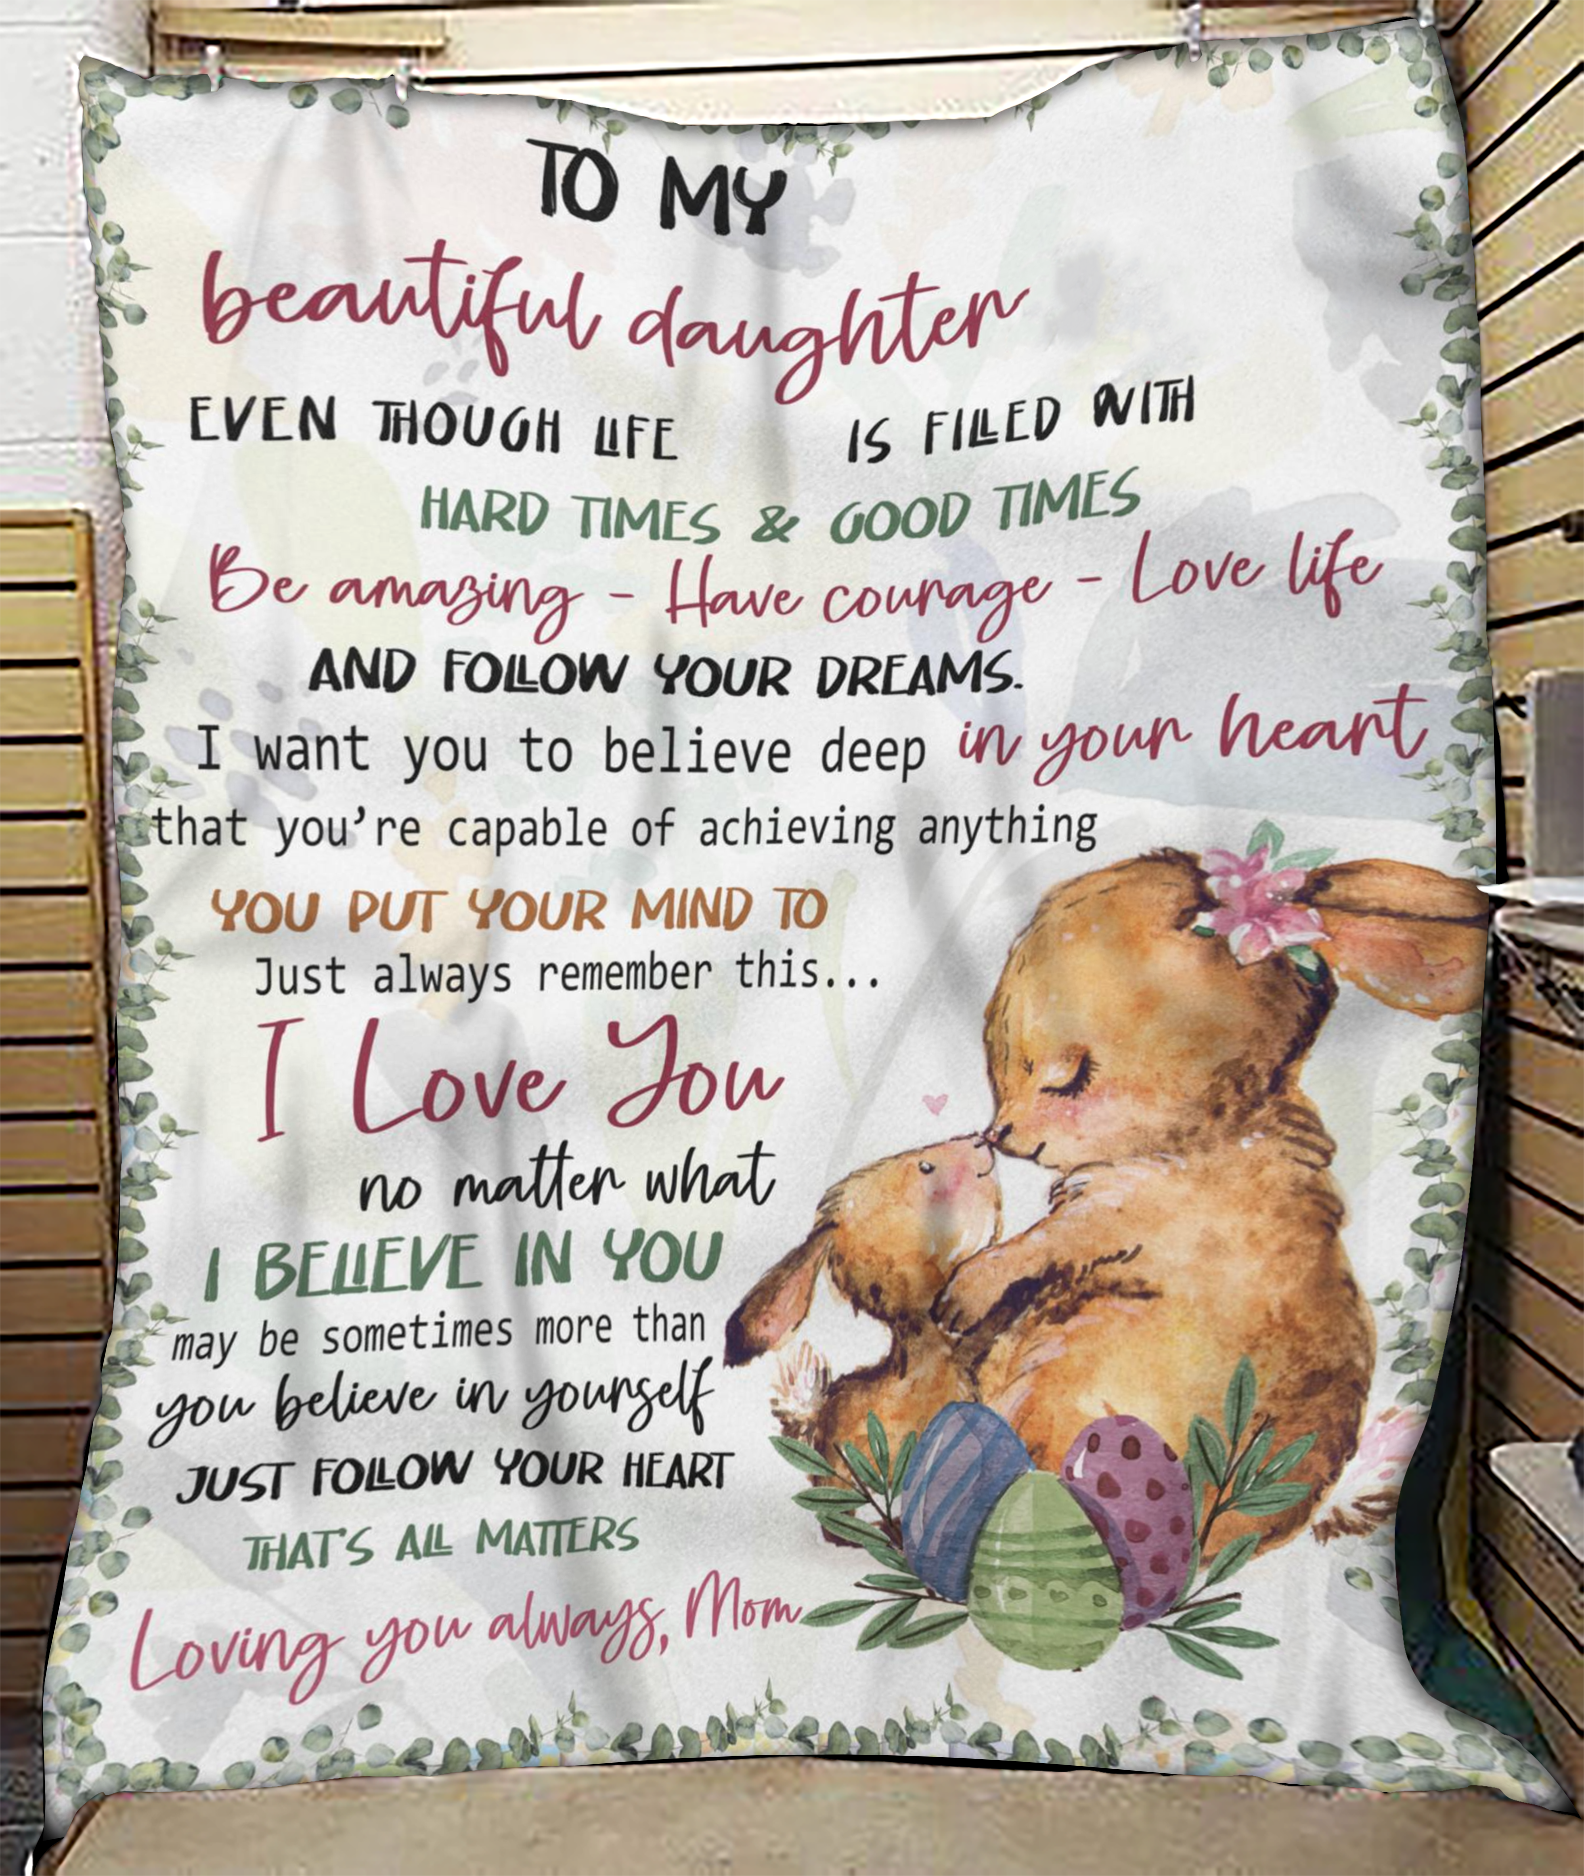 TO MY
beautiful daughter
EVEN THOUGH LIFE IS FILLED WITH
HARD TIMES & GOOD TIMES
Be amazing - Have courage - Love life
AND FOLLOW YOUR DREAMS.
I want you to believe deep in your heart
that you're capable of achieving anything
YOU PUT YOUR MIND TO
Just always remember this...
I Love You
no matter what
I BELIEVE IN YOU
may be sometimes more than
you believe in yourself
JUST FOLLOW YOUR HEART
THAT'S ALL MATTERS
Loving you always, Mom